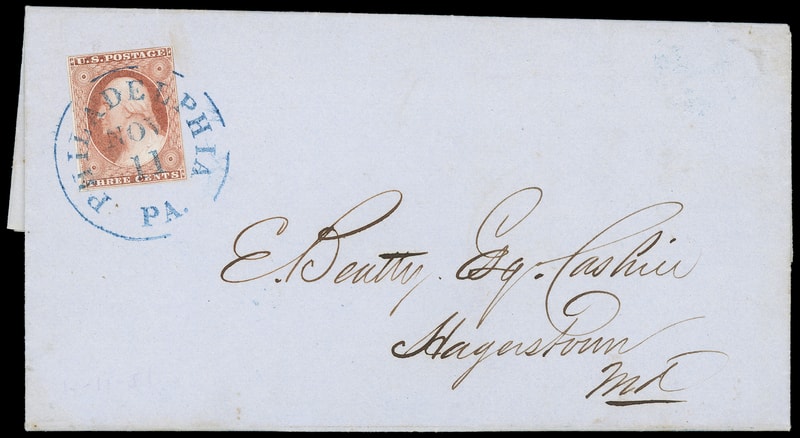 U.S. POSTAGE
THREE CENTS
PHILADELPHIA
NOV
11
PA.
E. Beatty. Esq. Cashier
Hagerstown
Md